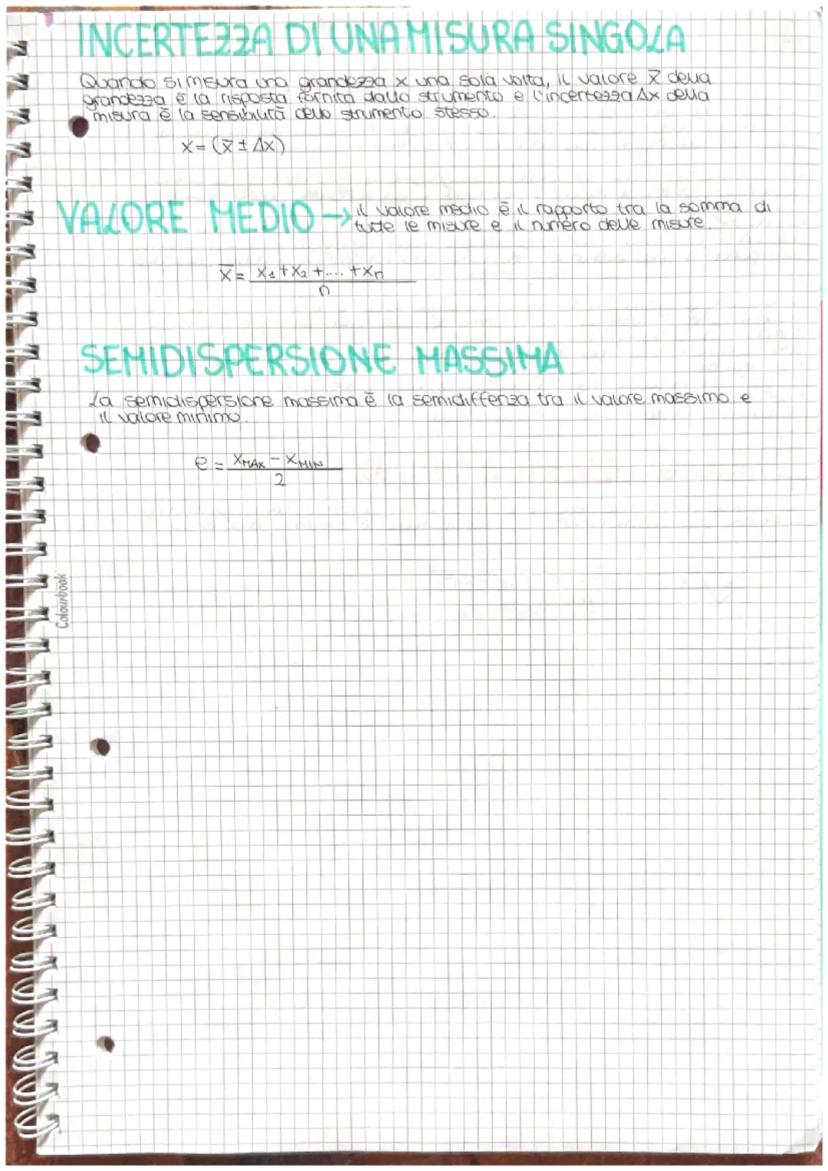 INCERTEZZA DI UNA MISURA SINGOLA
Quando si misura una grandezza x una sola volta, il valore x̄ della
grandezza è la risposta fornita dallo strumento e l'incertezza Δx della
misura è la sensibilità dello strumento stesso.
x = (x̄ ± Δx)
VALORE MEDIO → il valore medio è il rapporto tra la somma di
tutte le misure e il numero delle misure.
x̄ = x₁ + x₂ + .... + xₙ
n
SEMIDISPERSIONE MASSIMA
La semidispersione massima è la semidiffenza tra il valore massimo e
il valore minimo.
e = x_MAX - x_MIN
2
Colourbook